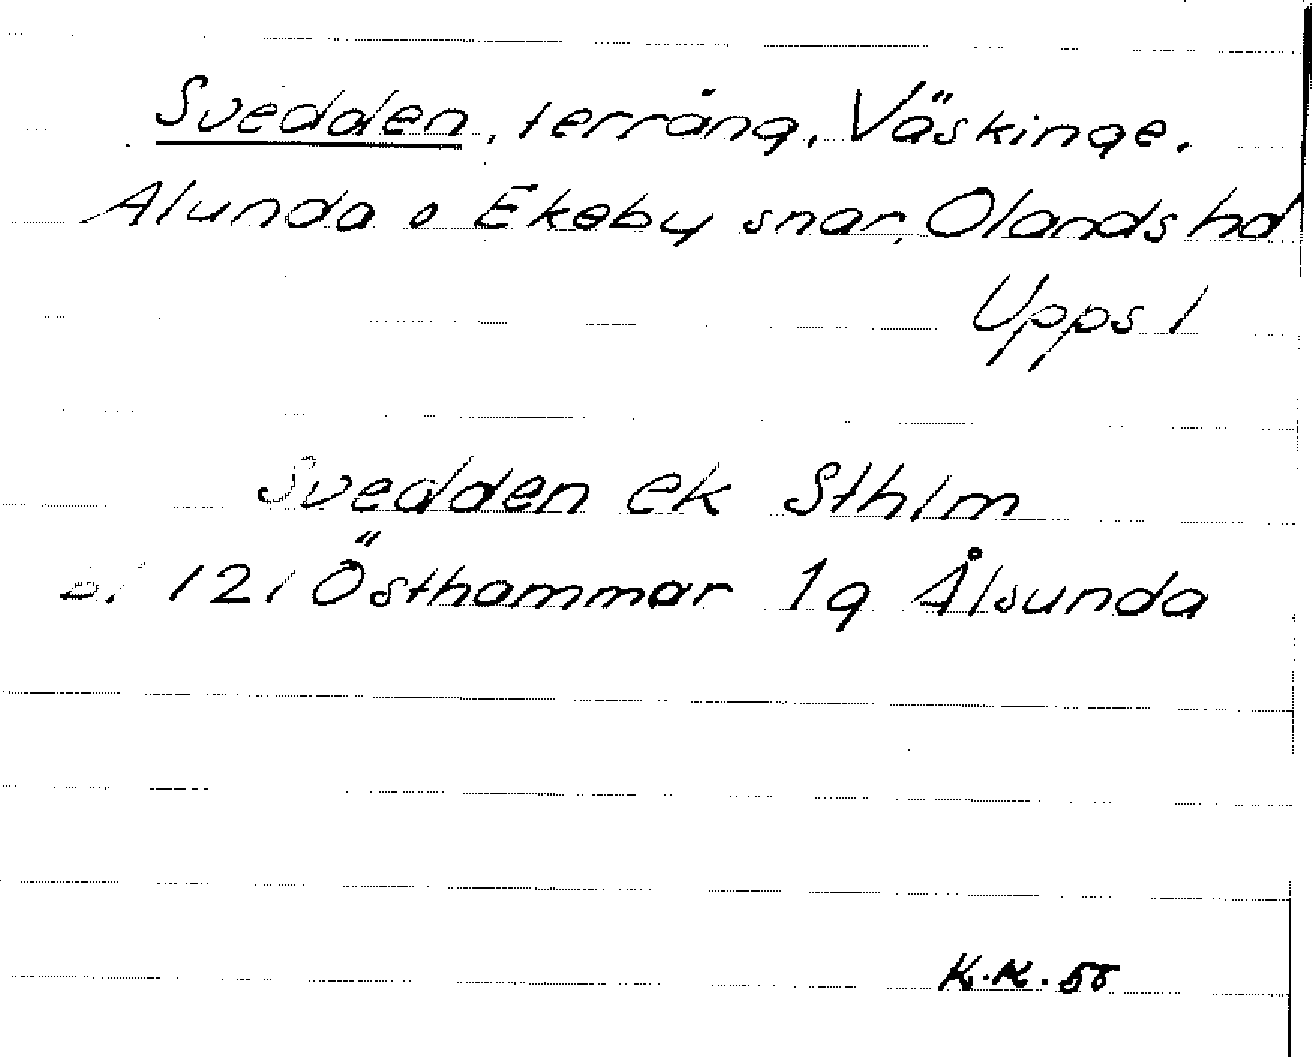 Svedden, terräng, Väskinge.
Alunda o Ekeby snar, Olands hd
Upps l
Svedden ek Sthlm
bl 121 Östhammar 1q Ålsunda
K.K. 58